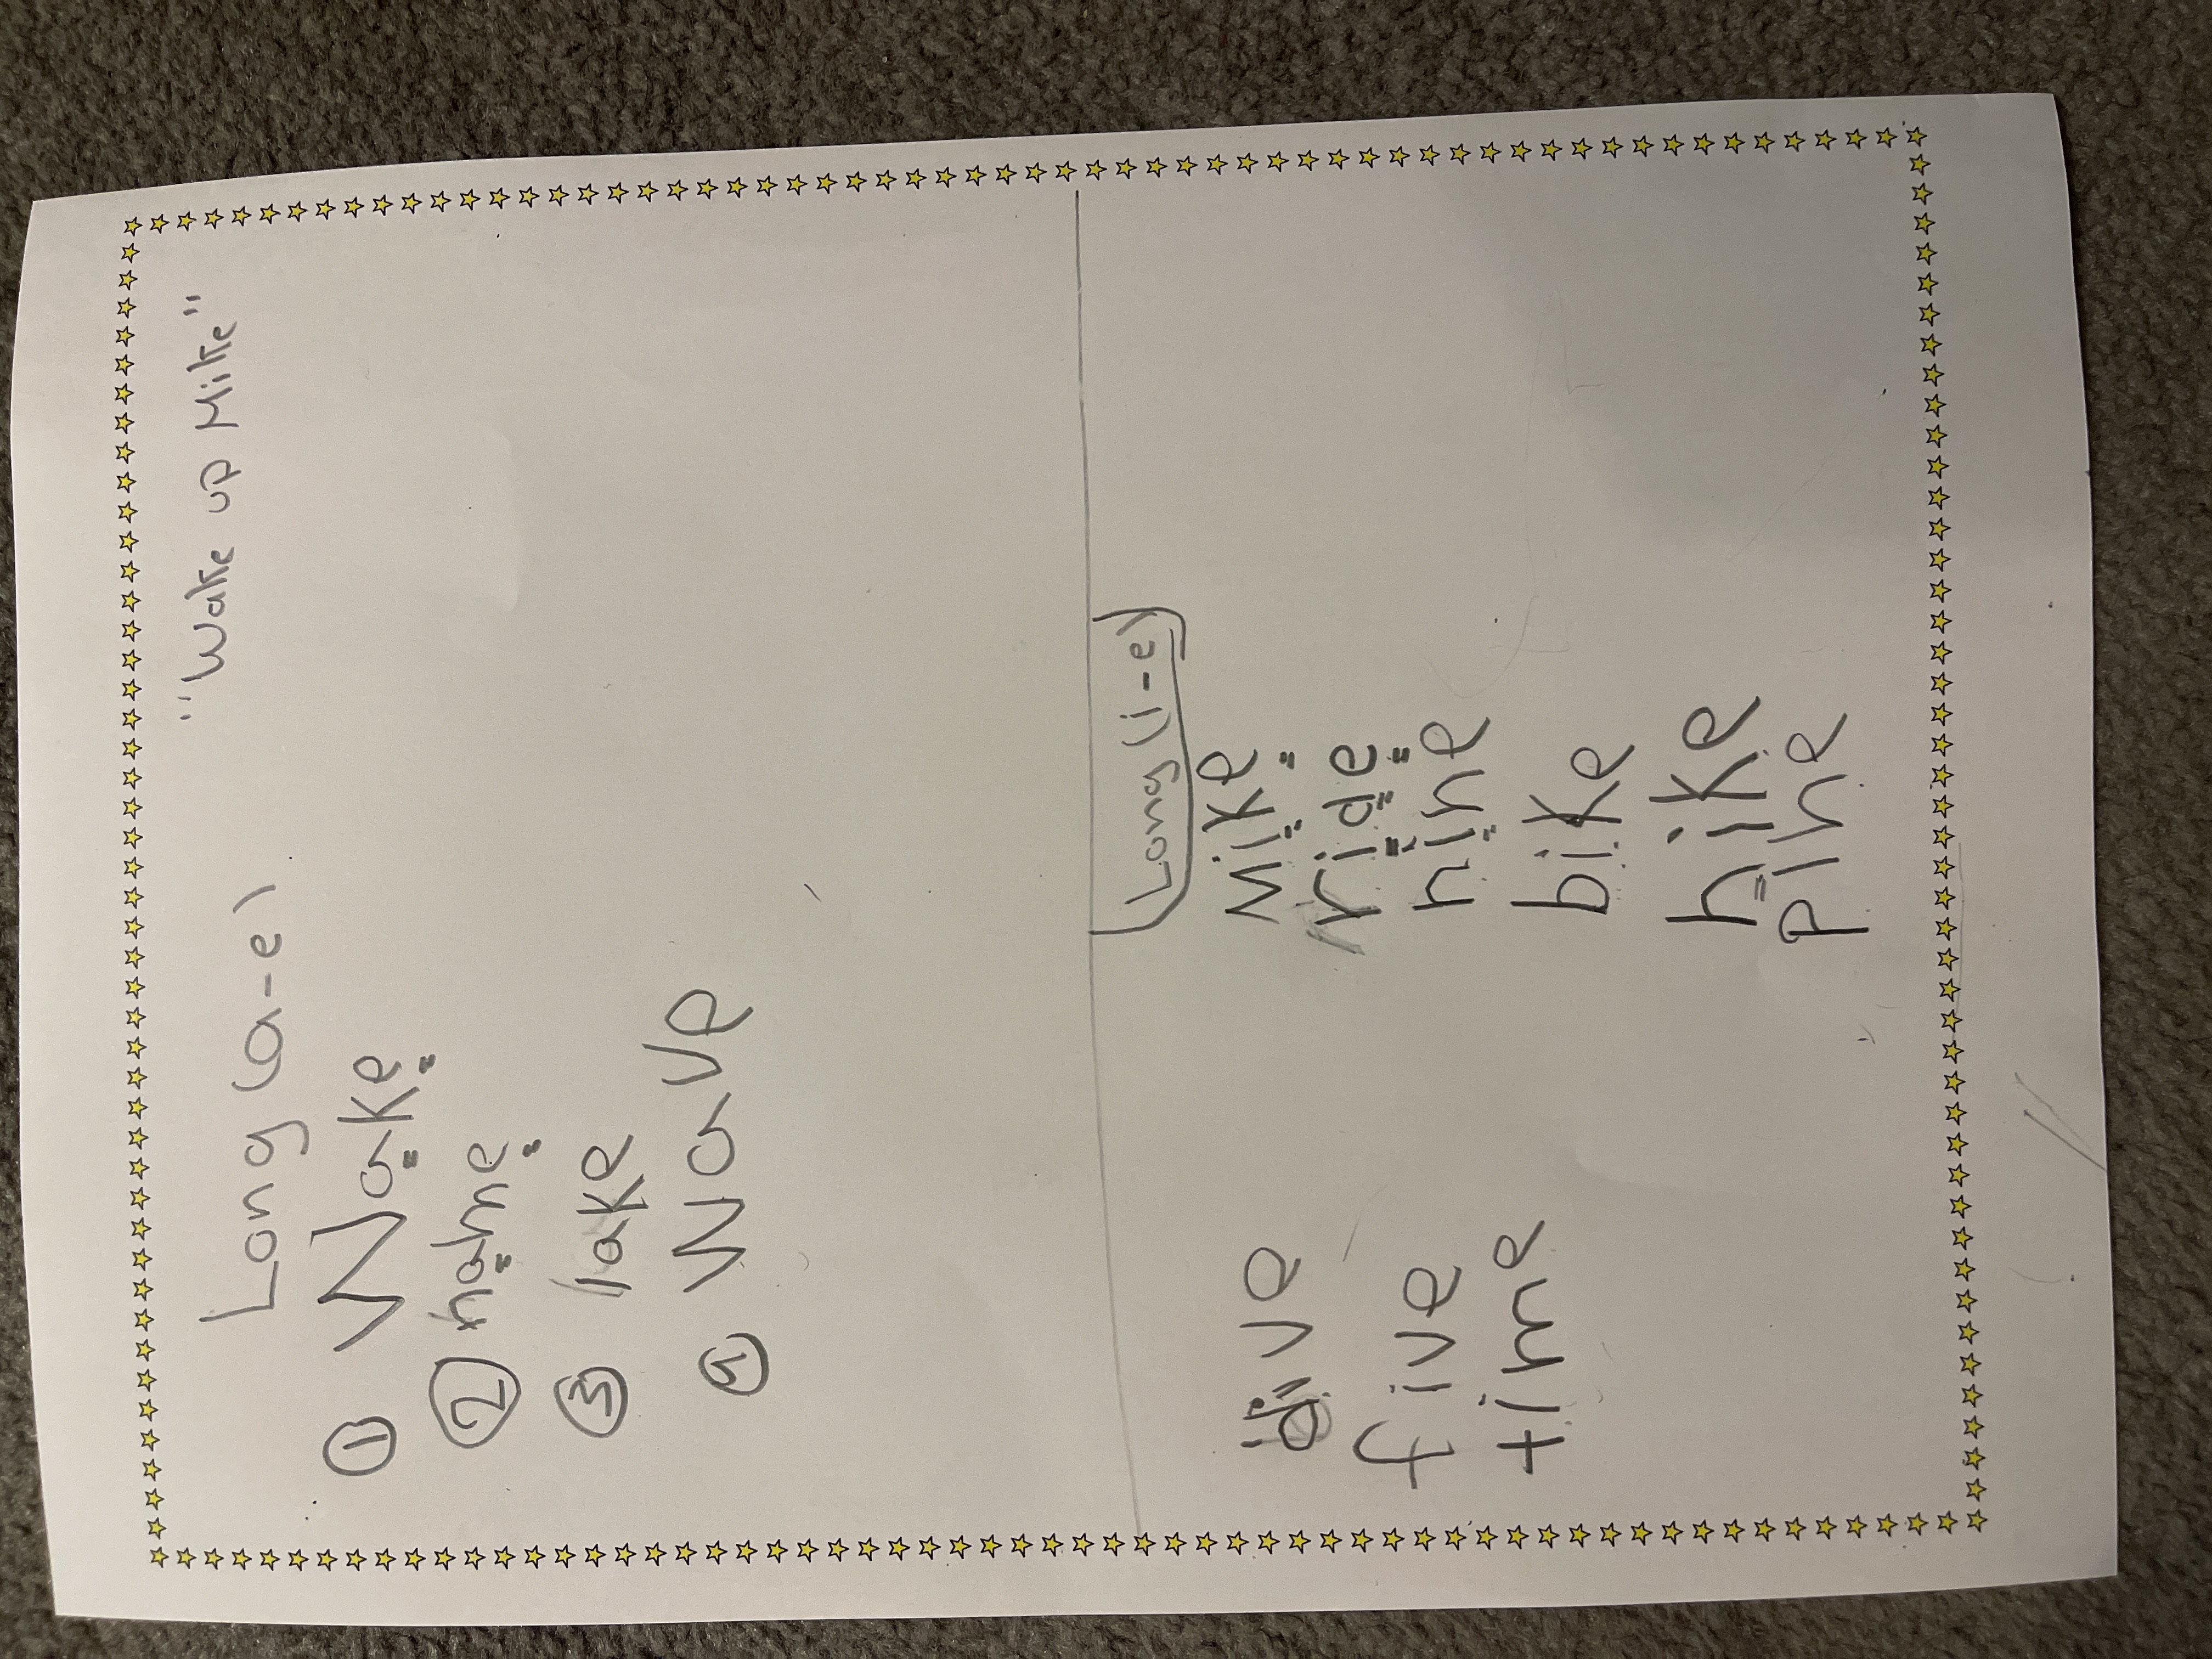 "Wake up Mike"
Long (a-e)
① Wake
② name
③ lake
④ Wave
Long (i-e)
Mike
ride
nine
bike
hike
pine
dive
five
time